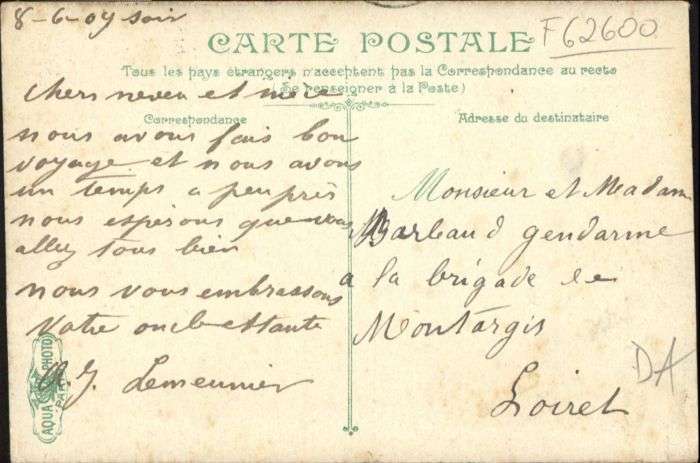 8-6-09 soir
F62600
CARTE POSTALE
Tous les pays étrangers n'acceptent pas la Correspondance au recto
(Se renseigner à la Poste)
Chers neveu et nièce
Correspondance
nous avons fais bon
voyage et nous avons
un temps a peu près
nous espérons que vous
allez tous bien
nous vous embrassons
Votre oncle et tante
Lemeunier
AQUA PHOTO
PARIS
Adresse du destinataire
Monsieur et Madame
Barbaud gendarme
a la brigade de
Montargis
Loiret
DA